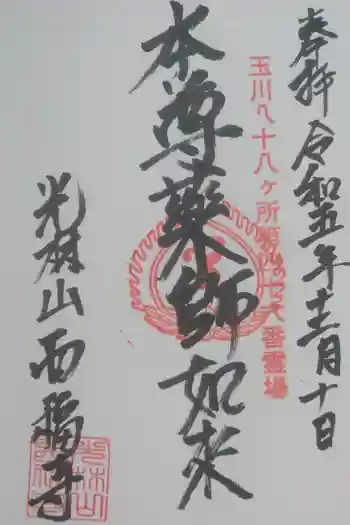 奉拝 令和五年十二月十日
玉川八十八ヶ所第 番霊場
本尊藥師如来
光林山 西福寺